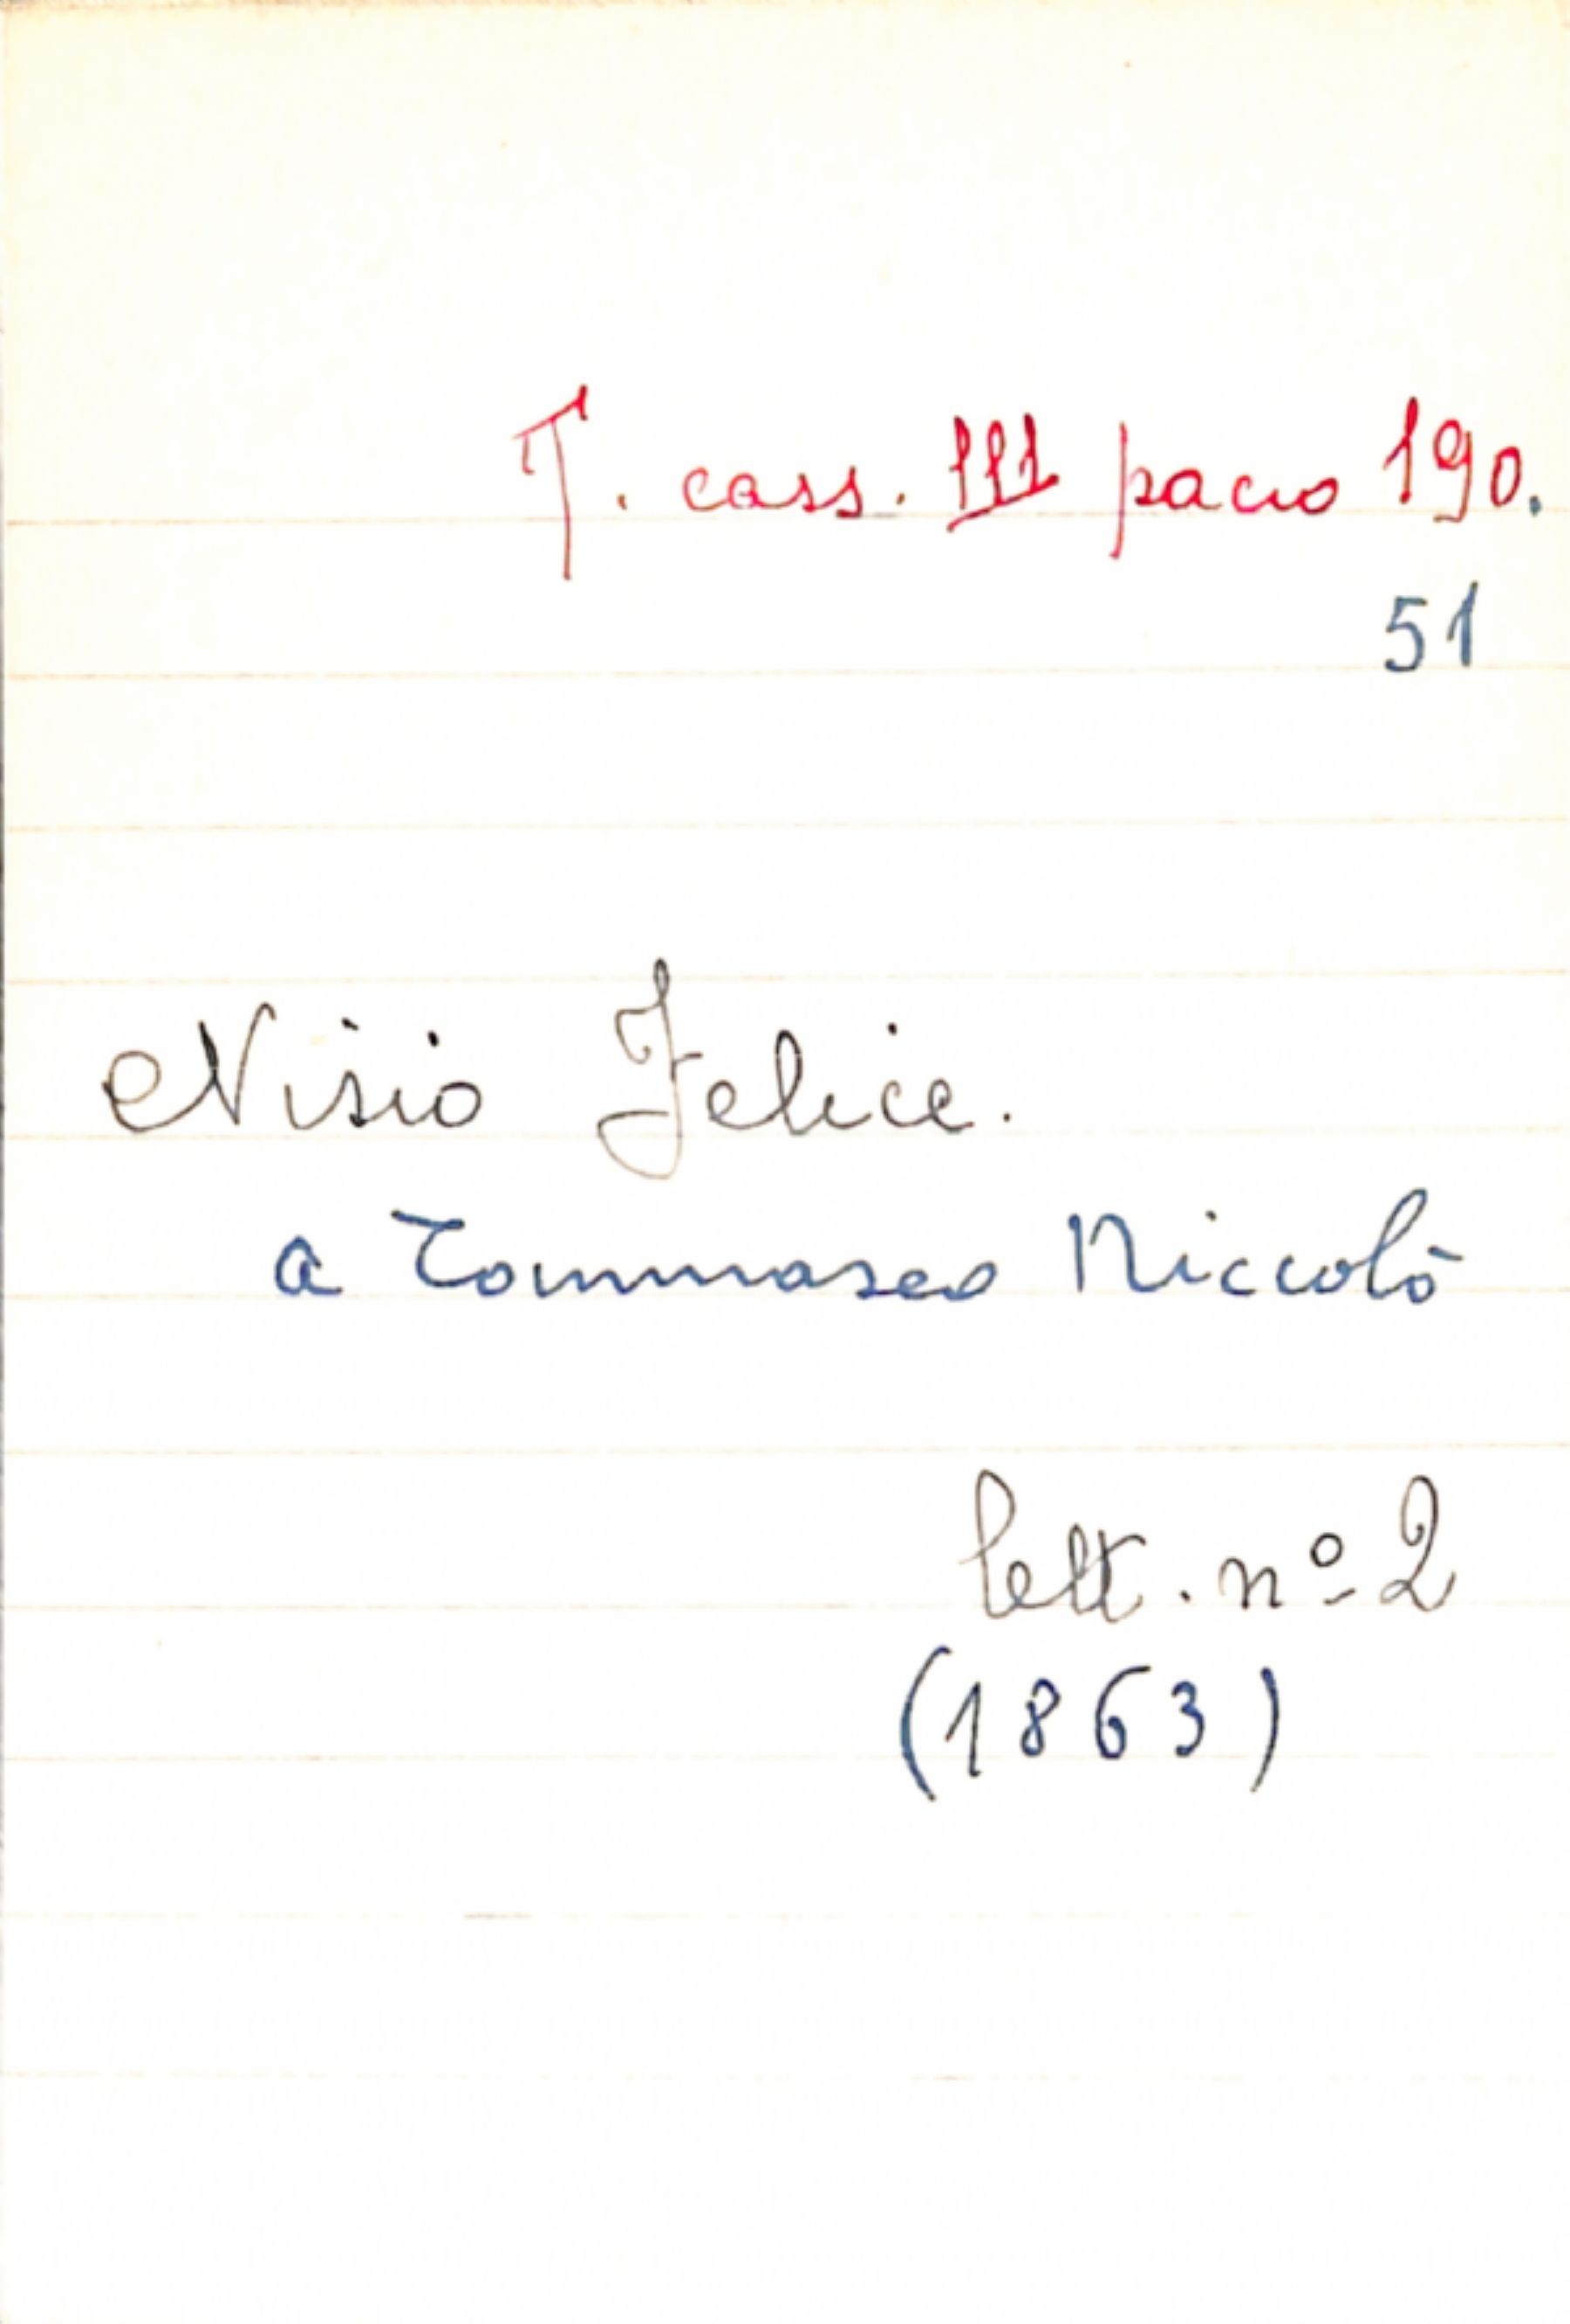 T. cass. III pacco 190.
51
Nisio Felice.
a Tommaseo Niccolò
lett. nº 2
(1863)